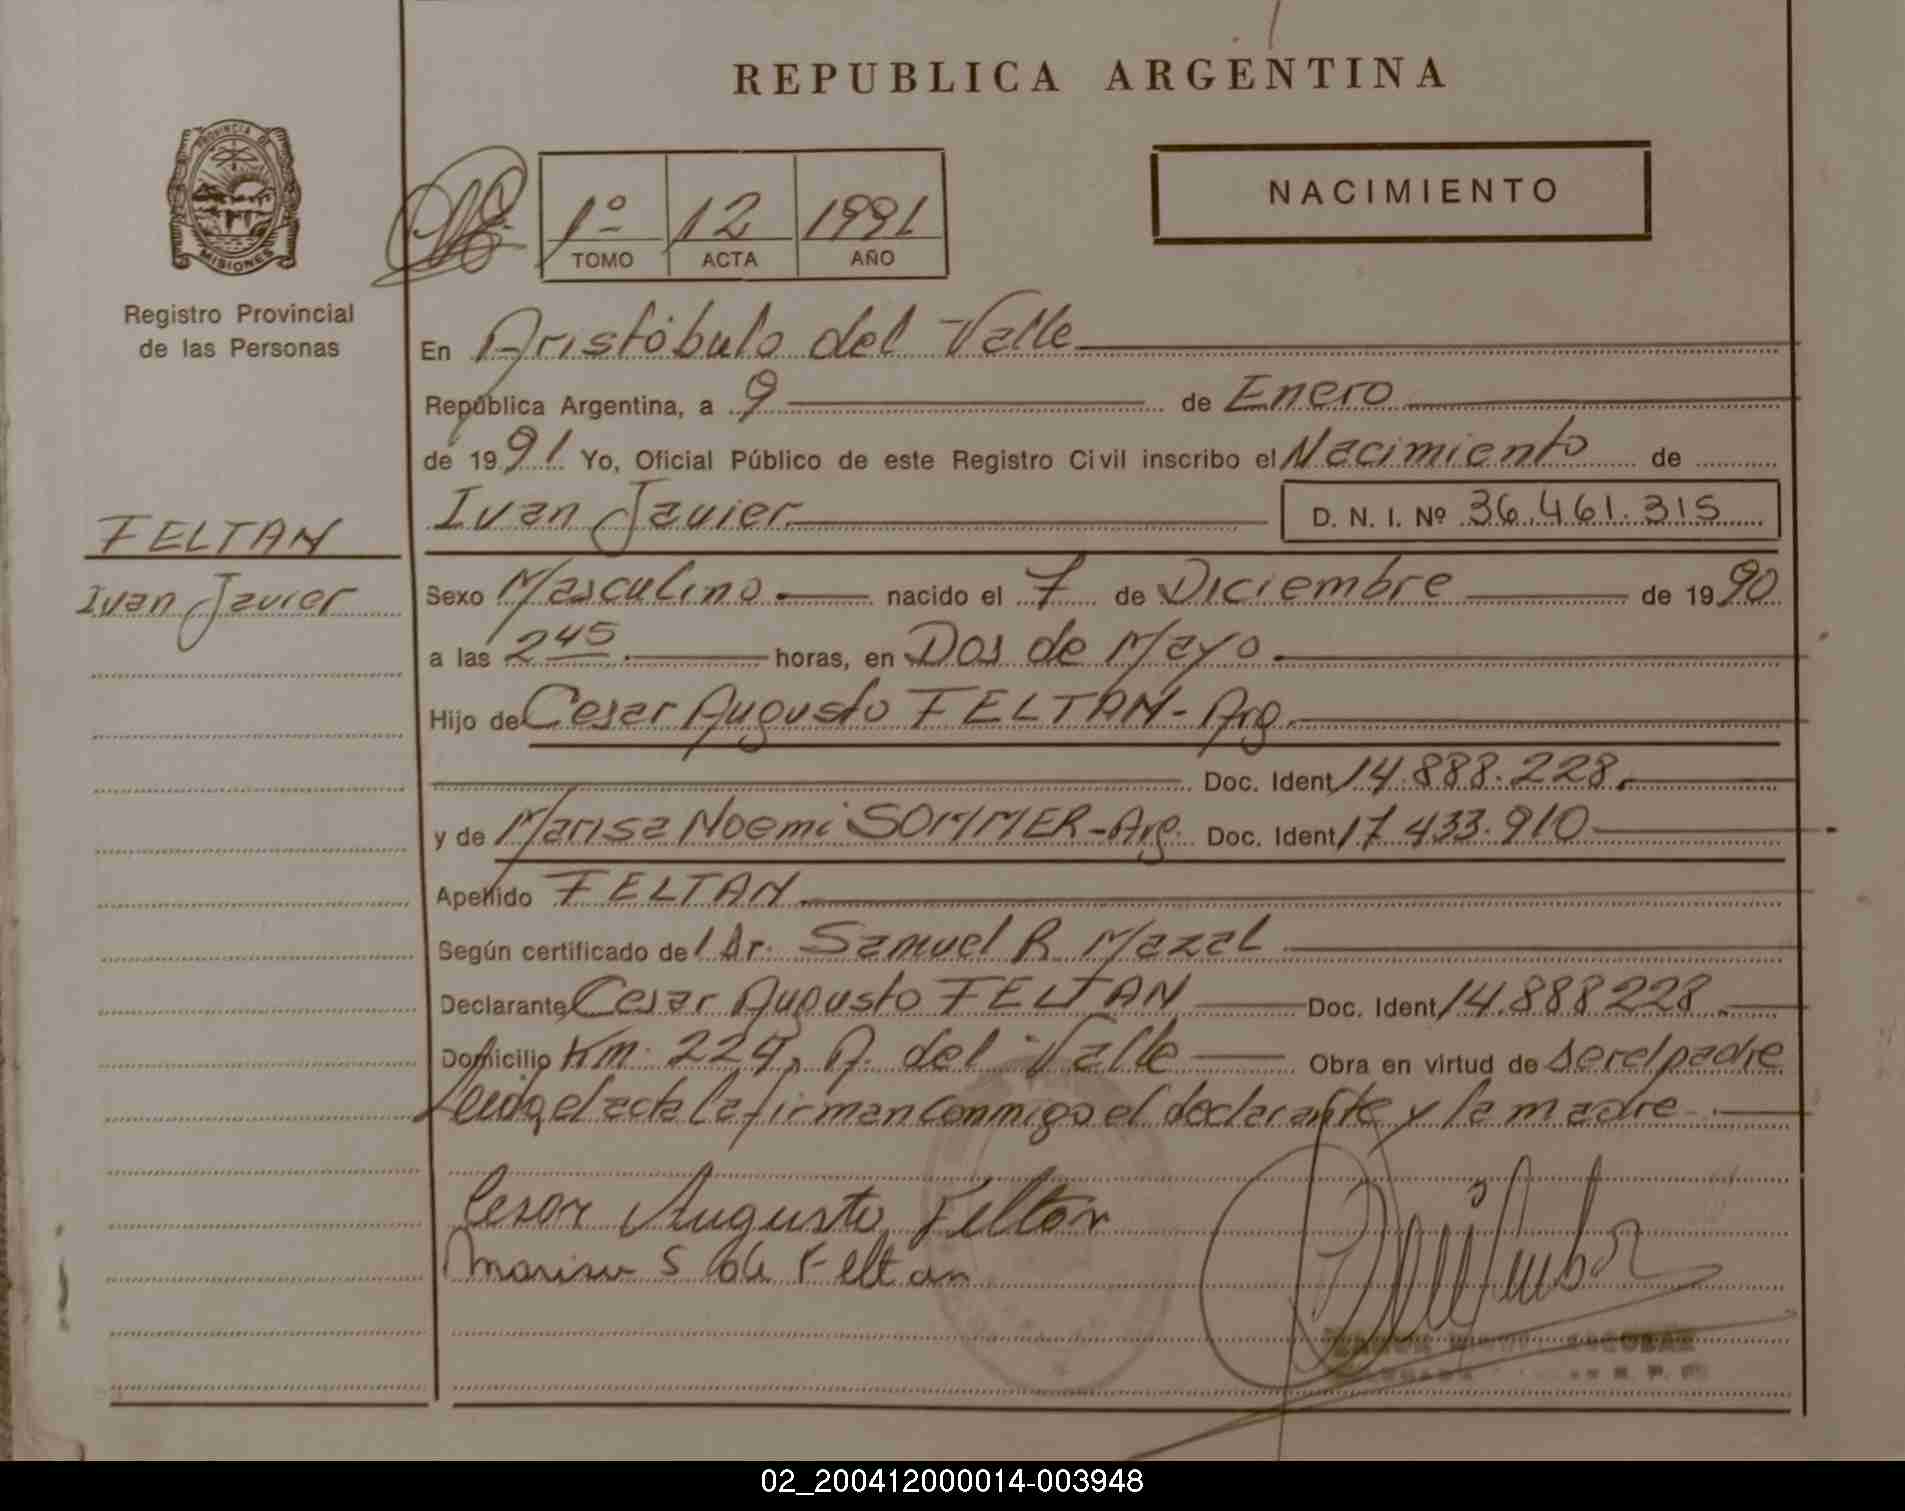 REPUBLICA ARGENTINA
PROVINCIA DE
MISIONES
Registro Provincial
de las Personas
1º 12 1991
TOMO ACTA AÑO
NACIMIENTO
En Aristóbulo del Valle
República Argentina, a 9 de Enero
de 1991 Yo, Oficial Público de este Registro Civil inscribo el Nacimiento de
Ivan Javier D. N. I. Nº 36.461.315
FELTAN
Ivan Javier
Sexo Masculino nacido el 7 de Diciembre de 1990
a las 2 45 horas, en Dos de Mayo
Hijo de Cesar Augusto FELTAN - Arg.
Doc. Ident 14.888.228.
y de Marisa Noemi SOMMER - Arg. Doc. Ident 17.433.910
Apellido FELTAN
Según certificado del Dr. Samuel R. Mazal
Declarante Cesar Augusto FELTAN Doc. Ident 14.888.228.
Domicilio Km. 224, A. del Valle Obra en virtud de ser el padre
Leida el acta la firman conmigo el declarante y la madre
Cesar Augusto Feltan
Marisa S de Feltan
ESCOBAR
02_200412000014-003948